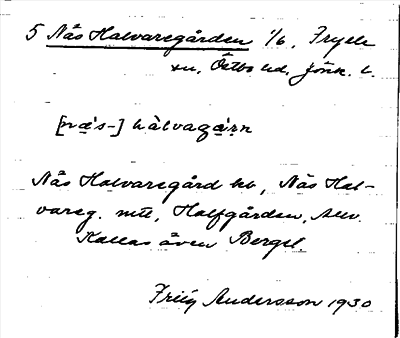 5 Nås Halvaregården 1/6, Fryele
sn, Östbo hd, Jönk. l.
[næ's-] hàlvaga̱rn
Nås Halvaregård hb, Nås Hal-
vareg. mtl, Halfgården,
Kallas även Berget.
Frity Andersson 1930